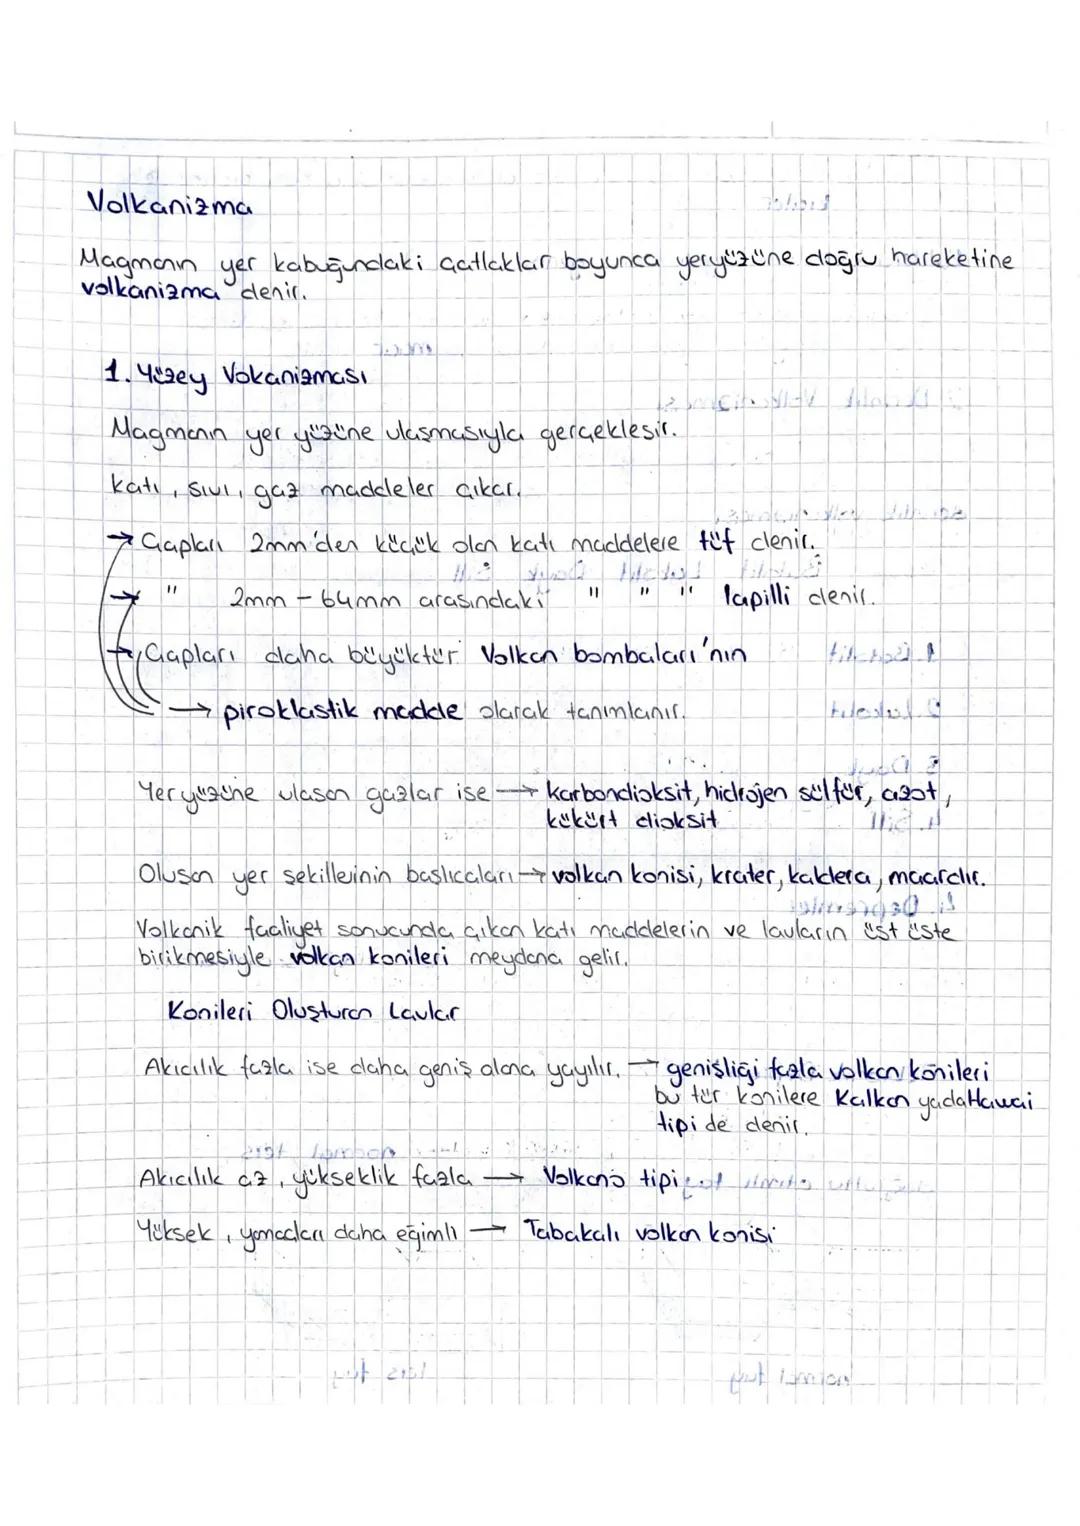 Volkanizma
Magmanın yer kabuğundaki çatlaklar boyunca yeryüzüne doğru hareketine
volkanizma denir.
1. Yüzey Vokanizması
Magmanın yer yüzüne ulaşmasıyla gerçekleşir.
katı, sıvı, gaz maddeler çıkar.
→ Çapları 2mm'den küçük olan katı maddelere tüf denir.
→ " 2mm - 64mm arasındaki " " " lapilli denir.
→ Çapları daha büyüktür Volkan bombaları'nın
→ piroklastik madde olarak tanımlanır.
Yeryüzüne ulaşan gazlar ise → karbondioksit, hidrojen sülfür, azot,
kükürt dioksit
Oluşan yer şekillerinin başlıcaları → volkan konisi, krater, kaldera, maardır.
Volkanik faaliyet sonucunda çıkan katı maddelerin ve lavların üst üste
birikmesiyle volkan konileri meydana gelir.
Konileri Oluşturan Lavlar
Akıcılık fazla ise daha geniş alana yayılır. → genişliği fazla volkan konileri
bu tür konilere Kalkan yada Hawai
tipi de denir.
Akıcılık az, yükseklik fazla → Volkano tipi
Yüksek, yamaçları daha eğimli → Tabakalı volkan konisi